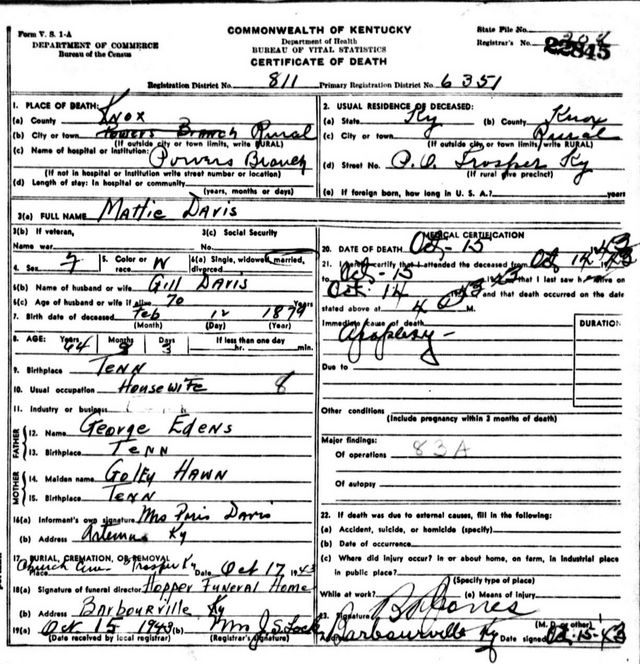 Form V. S. 1-A
DEPARTMENT OF COMMERCE
Bureau of the Census
COMMONWEALTH OF KENTUCKY
Department of Health
BUREAU OF VITAL STATISTICS
CERTIFICATE OF DEATH
State File No.
Registrar's No. 22845
Registration District No. 811 Primary Registration District No. 6351
1. PLACE OF DEATH:
(a) County Knox
(b) City or town Powers Branch Rural
(If outside city or town limits, write RURAL)
(c) Name of hospital or institution:
Powers Branch
(If not in hospital or institution write street number or location)
(d) Length of stay: In hospital or community
(years, months or days)
2. USUAL RESIDENCE OF DECEASED:
(a) State Ky (b) County Knox
(c) City or town Rural
(If outside city or town limits, write RURAL)
(d) Street No. P.O. Trosper Ky
(If rural give precinct)
(e) If foreign born, how long in U. S. A.? years
3(a) FULL NAME Mattie Davis
3(b) If veteran,
Name war
3(c) Social Security
No.
4. Sex F
5. Color or
race W
6(a) Single, widowed, married,
divorced
6(b) Name of husband or wife Gill Davis
6(c) Age of husband or wife if alive 70 Years
7. Birth date of deceased Feb 12 1879
(Month) (Day) (Year)
8. AGE: Years 64 Months 8 Days 3 If less than one day
hr. min.
9. Birthplace Tenn
10. Usual occupation Housewife 8
11. Industry or business
FATHER
12. Name George Edens
13. Birthplace Tenn
MOTHER
14. Maiden name Golfy Hawn
15. Birthplace Tenn
16(a) Informant's own signature Mrs Paris Davis
(b) Address Artemus Ky
17. BURIAL, CREMATION, OR REMOVAL
Place Church Cem Trosper Ky Date Oct 17 1943
18(a) Signature of funeral director Hopper Funeral Home
(b) Address Barbourville Ky
19(a) Oct 15 1943 (b) Mrs J.S. Lock
(Date received by local registrar) (Registrar's Signature)
MEDICAL CERTIFICATION
20. DATE OF DEATH Oct-15 1943
21. I hereby certify that I attended the deceased from Oct 14 1943
to Oct-15 1943 that I last saw h alive on
Oct 14 1943 and that death occurred on the date
stated above at 4 M.
Immediate cause of death
Apoplexy-
DURATION
Due to
Other conditions
(Include pregnancy within 3 months of death)
Major findings:
Of operations 83A
Of autopsy
22. If death was due to external causes, fill in the following:
(a) Accident, suicide, or homicide (specify)
(b) Date of occurrence
(c) Where did injury occur? In or about home, on farm, in industrial place
in public place?
(Specify type of place)
While at work? (e) Means of injury
23. Signature Jones
(M. D. or other)
Address Barbourville Ky Date signed Oct-15-43